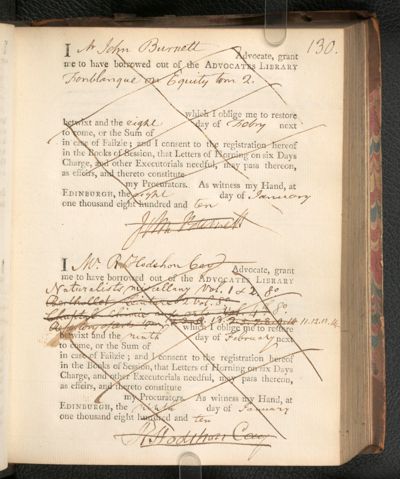 130.
I Mr John Burnett Advocate, grant
me to have borrowed out of the ADVOCATES LIBRARY
Fonblanque on Equity tom 2.
which I oblige me to restore
betwixt and the eight day of Febry next
to come, or the Sum of
in case of Failzie; and I consent to the registration hereof
in the Books of Session, that Letters of Horning on six Days
Charge, and other Executorials needful, may pass thereon,
as effeirs, and thereto constitute
my Procurators. As witness my Hand, at
EDINBURGH, the eight day of January
one thousand eight hundred and ten
John Burnett
I Mr. R. Hodshon Cay Advocate, grant
me to have borrowed out of the ADVOCATES LIBRARY
Naturalists miscellany Vol. 1 & 2. 8o
2 Vol. 8o
Vol. 1 8o
which I oblige me to restore 11.12.13.
betwixt and the ninth day of February next
to come, or the Sum of
in case of Failzie; and I consent to the registration hereof
in the Books of Session, that Letters of Horning on six Days
Charge, and other Executorials needful, may pass thereon,
as effeirs, and thereto constitute
my Procurators. As witness my Hand, at
EDINBURGH, the day of January
one thousand eight hundred and ten
R. Hodshon Cay